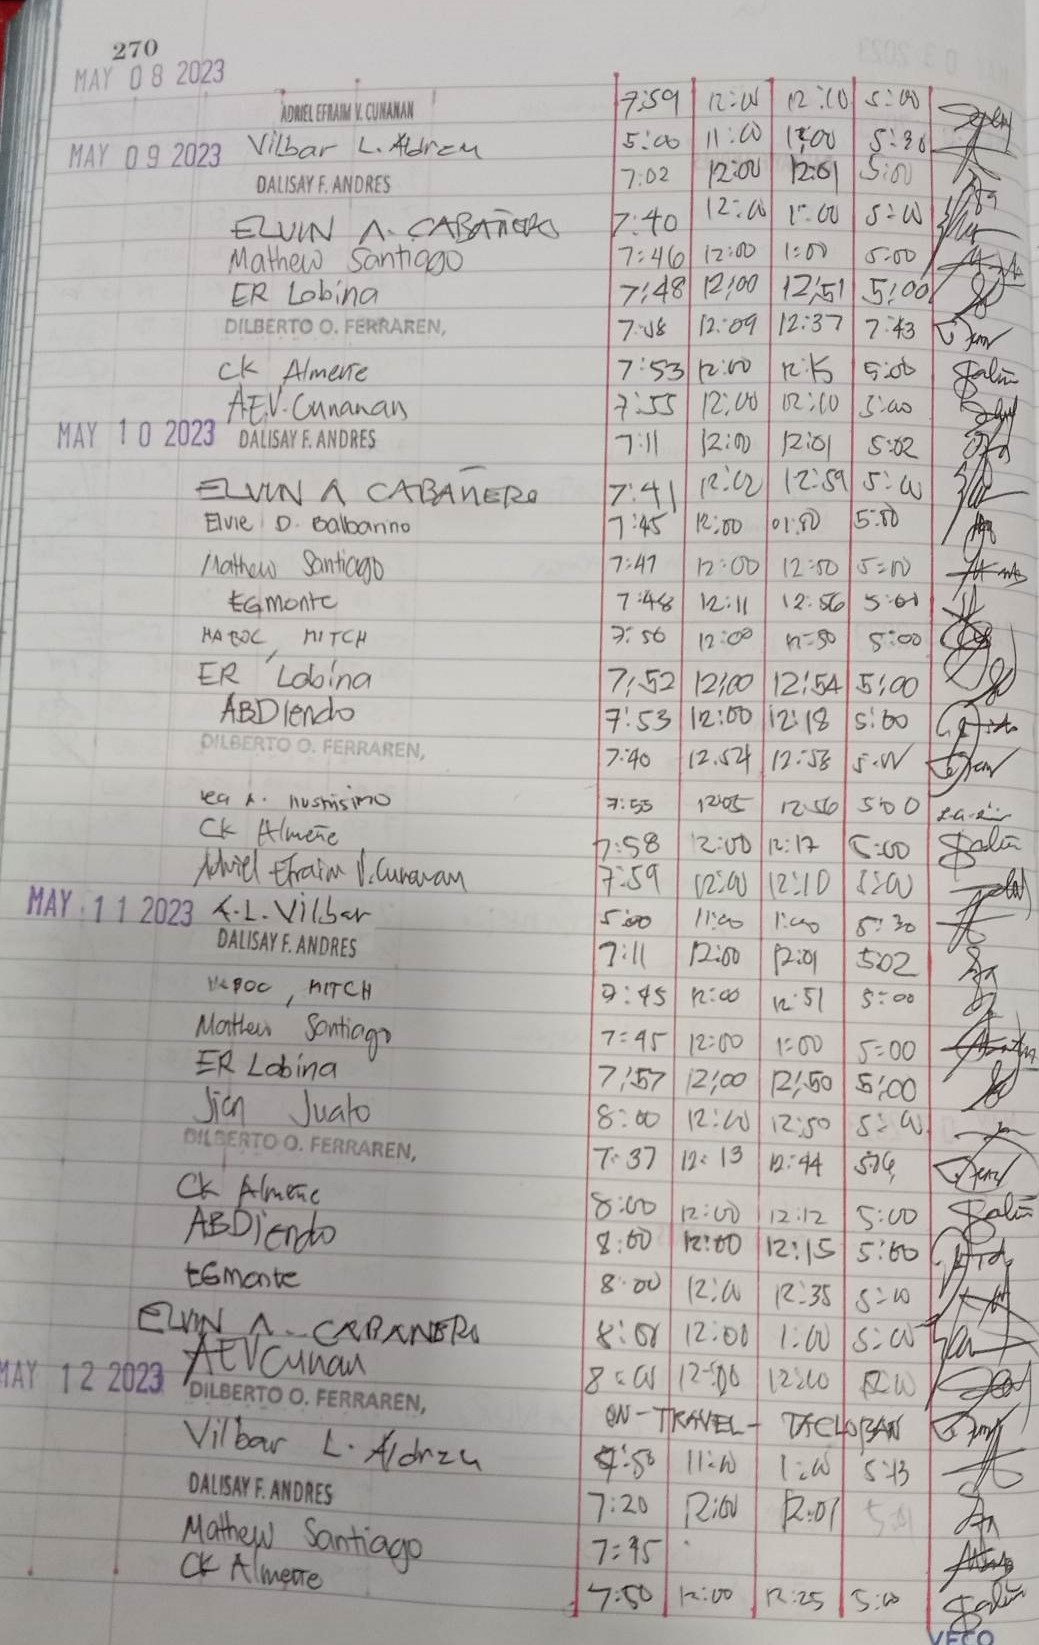 270
MAY 08 2023
ADRIEL EFRAIM V. CUNANAN 7:59 12:00 12:10 5:00
MAY 09 2023 Vilbar L. Aldrzu 5:00 11:00 5:30
DALISAY F. ANDRES 7:02 12:00 12:01 5:00
ELVIN A. CABAÑERO 7:40 12:00 1:00 5:00
Mathew Santiago 7:46 12:00 1:00 5:00
ER Lobina 7:48 12:00 12:51 5:00
DILBERTO O. FERRAREN, 12:09 12:37 7:43
CK Almeñe 7:53 12:00 12:15 5:00
AEV. Cunanan 7:55 12:00 12:10 5:00
MAY 10 2023 DALISAY F. ANDRES 7:11 12:00 12:01 5:02
ELVIN A CABAÑERO 7:41 12:02 12:59 5:00
Elvie D. Balbarino 7:45 12:00 01:00 5:00
Mathew Santiago 7:47 12:00 12:50 5:00
EGmonte 7:48 12:11 12:56 5:01
MABOC, MITCH 7:50 12:00 12:50 5:00
ER Lobina 7:52 12:00 12:54 5:00
ABDiendo 7:53 12:00 12:18 5:00
DILBERTO O. FERRAREN, 7:40 12.54 12:58 5:00
12:05 12:56 5:00
CK Almeñe 7:58 12:00 12:17 5:00
Adriel Efraim V. Cunanan 7:59 12:00 12:10 5:00
MAY 11 2023 A.L. Vilbar 5:00 11:00 1:00 5:30
DALISAY F. ANDRES 7:11 12:00 12:01 5:02
MABOC, MITCH 7:45 12:00 12:51 5:00
Mathew Santiago 7:45 12:00 1:00 5:00
ER Lobina 7:57 12:00 12:50 5:00
Jian Juato 8:00 12:00 12:50 5:00
DILBERTO O. FERRAREN, 7:37 12:13 12:44
CK Almeñe 8:00 12:00 12:12 5:00
ABDiendo 8:00 12:00 12:15 5:00
EGmonte 8:00 12:00 12:35 5:00
ELVIN A. CABANERO 8:01 12:00 1:00 5:00
AEVCunan 8:00 12:00 12:10
MAY 12 2023 DILBERTO O. FERRAREN, ON-TRAVEL- TACLOBAN
Vilbar L. Aldrzu 11:00 1:00 5:13
DALISAY F. ANDRES 7:20 12:00 12:01
Mathew Santiago 7:45
CK Almeñe 7:50 12:00 12:25 5:00
VECO